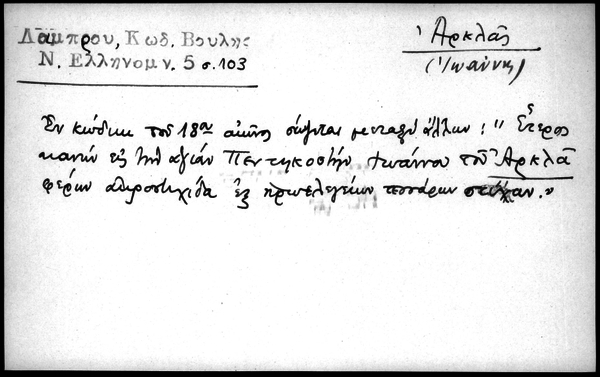 Λαμπρου, Κωδ. Βουλης
Ν. Ελληνομν. 5 σ. 103
Ἀρκλᾶς
(Ἰωάννης)
Ἐν κώδικι τοῦ 18ου αἰῶνος σώζεται μεταξὺ ἄλλων: "Ἕτερος
κανὼν εἰς τὴν ἁγίαν Πεντηκοστὴν Ἰωάννου τοῦ Ἀρκλᾶ
φέρων ἀκροστιχίδα ἐξ ἡρωελεγείων τεσσάρων στίχων."